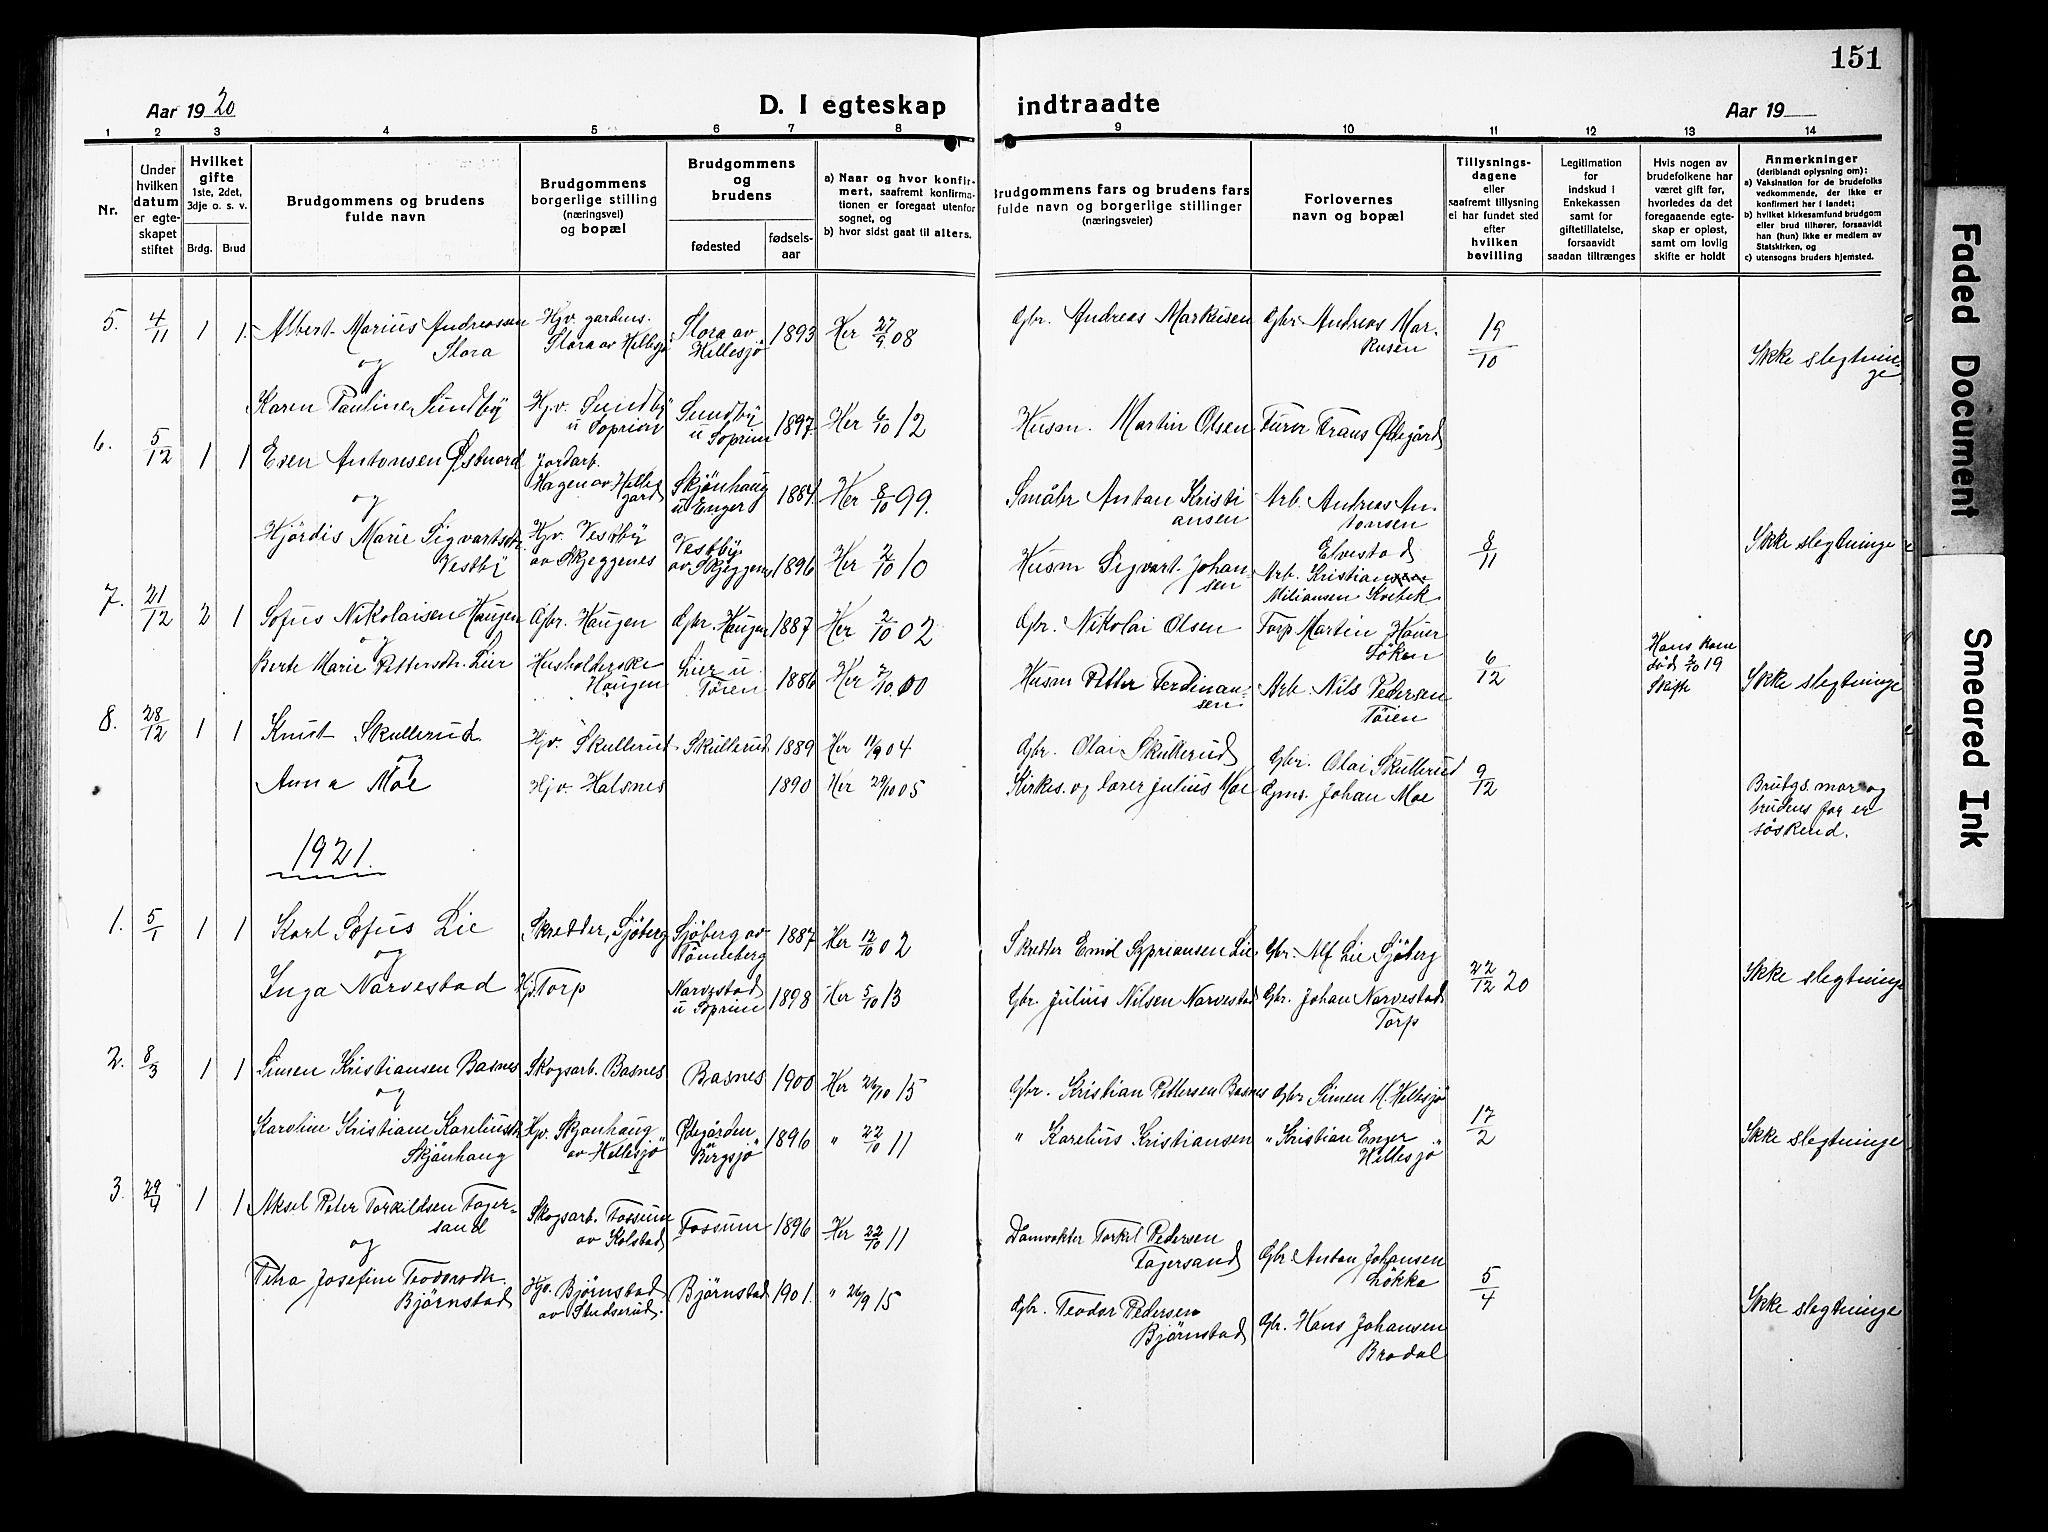 151
Aar 1920
D. I egteskap indtraadte
Aar 19
1 2 3 4 5 6 7 8 9 10 11 12 13 14
Nr.
Under hvilken datum er egte-skapet stiftet
Hvilket gifte
1ste, 2det, 3dje o. s. v.
Brdg. Brud
Brudgommens og brudens fulde navn
Brudgommens borgerlige stilling (næringsvei) og bopæl
Brudgommens og brudens
fødested
fødsels-aar
a) Naar og hvor konfir-mert, saafremt konfirma-tionen er foregaat utenfor sognet, og
b) hvor sidst gaat til alters.
Brudgommens fars og brudens fars fulde navn og borgerlige stillinger (næringsveier)
Forlovernes navn og bopæl
Tillysnings-dagene eller saafremt tillysning ei har fundet sted efter hvilken bevilling
Legitimation for indskud i Enkekassen samt for giftetillatelse, forsaavidt saadan tiltrænges
Hvis nogen av brudefolkene har været gift før, hvorledes da det foregaaende egte-skap er opløst, samt om lovlig skifte er holdt
Anmerkninger
(deriblandt oplysning om):
a) Vaksination for de brudefolks vedkommende, der ikke er konfirmert her i landet;
b) hvilket kirkesamfund brudgom eller brud tilhører, forsaavidt han (hun) ikke er medlem av Statskirken, og
c) utensogns bruders hjemsted.
5. 4/11 1 1. Albert Marius Andreassen Slora Hjv. gardens. Slora av Hellesjø Slora av Hellesjø 1893 Her 27/9 08 Gbr. Andreas Markusen Gbr. Andreas Mar-kusen 19/10 Ikke slegtninge
og
Karen Pauline Sundby Hjv. Sundby u Soprim Sundby u Soprim 1897. Her 6/10 12 Husm. Martin Olsen Furer Frans Ødegård
6. 5/12 1 1 Even Antonsen Østnord Jordarb. Hagen av Hellegard Skjönhaug u Enger 1884. Her 8/10 99. Småbr Anton Kristiansen Arb. Andreas Antonsen Elvestad
og
Hjördis Marie Sigvartsdtr. Vestby Hjv. Vestby av Skjeggenes Vestby av Skjeggenes 1896 Her 2/10 10 Husm Sigvart Johansen Arb. Kristian Miliansen Kvebek 8/11 Ikke slegtninge
7. 21/12 2 1 Sofus Nikolaisen Haugen Gbr. Haugen Gbr. Haugen 1887 Her 2/10 02 Gbr. Nikolai Olsen Torp Martin Hauer Löken
og
Berte Marie Pettersdtr. Lier Husholderske Haugen Lier u. Töien 1886 Her 7/10. 00 Husm Petter Ferdinansen. Arb. Nils Pedersen Töien 6/12 Hans kone död 2/10 19 Skifte Ikke slegtninge
8. 28/12 1 1 Knut Skullerud Hjv. Skullerud Skullerud 1889 Her 11/9 04 Gbr. Olai Skullerud Gbr. Olai Skullerud
og
Anna Moe Hjv. Halsnes 1890 Her 29/10 05 Kirkes. og lærer Julius Moe Gms. Johan Moe 9/12 Brudgs. mor og brudens far er söskend.
1921.
1. 5/1 1 1 Karl Sofus Lie Skredder, Sjöberg Sjöberg av Tönneberg 1887 Her 12/10 02 Skredder Emil Sypriansen Lie Gbr. Alf Lie Sjöberg
og
Inga Narvestad Hj. Torp Narvestad u Soprim 1898 Her 5/10 13 Gbr. Julius Nilsen Narvestad Gbr. Johan Narvestad Torp 22/12 20 Ikke slegtninge
2. 8/3 1 1 Simen Kristiansen Basnes Skogsarb. Basnes Basnes 1900 Her 26/10 15 Gbr. Kristian Pettersen Basnes Gbr Simen M. Hellesjø
og
Karoline Kristiane Kareliusdtr Skjönhaug Hjv. Skjønhaug av Hellesjø Ødegården Bergsjø 1896 " 22/10 11 " Karelius Kristiansen " Kristian Enger Hellesjø " 17/2 Ikke slegtninge
3. 29/4 1 1 Aksel Peter Torkildsen Fager-sand Skogsarb. Fossum av Kolstad Fossum 1896 Her 22/10 11 Damvokter Torkel Pedersen Fagersand Gbr. Anton Johansen Lökka
og
Petra Josefine Teodorsdtr. Bjørnstad Hjv. Bjørnstad av Studserud. Bjørnstad 1901. " 26/9 15 Gbr. Teodor Pedersen Bjørnstad Gbr. Hans Johansen Brodal 5/4 Ikke slegtninge
Faded Document
Smeared Ink